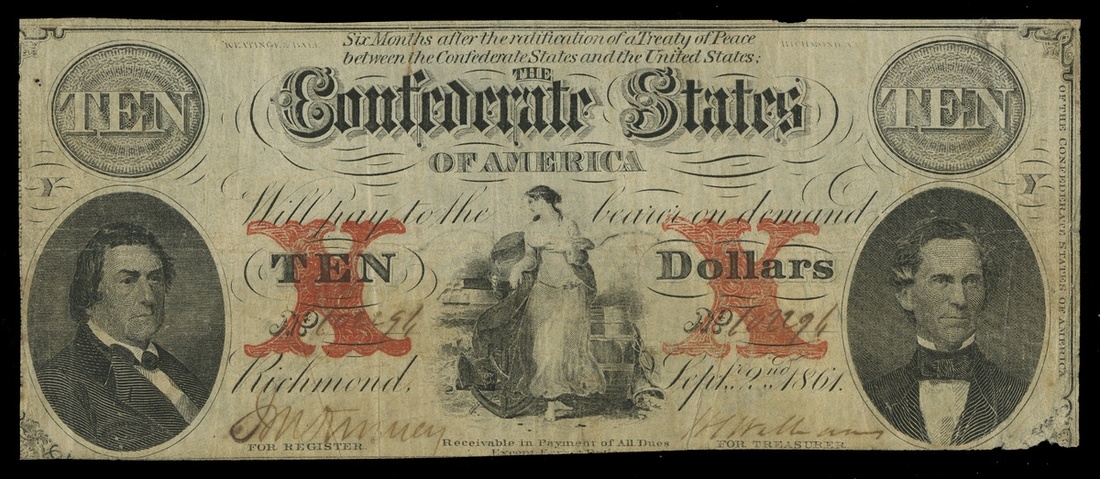 KEATINGE & BALL
Six Months after the ratification of a Treaty of Peace
RICHMOND, VA
between the Confederate States and the United States;
THE
TEN
Confederate States
TEN
OF AMERICA
Y
Y
Will pay to the bearer on demand
X
X
TEN
Dollars
No
No
Richmond, Sept. 2nd 1861.
FOR REGISTER.
Receivable in Payment of All Dues
FOR TREASURER.
Except Export Duties
OF THE CONFEDERATE STATES OF AMERICA